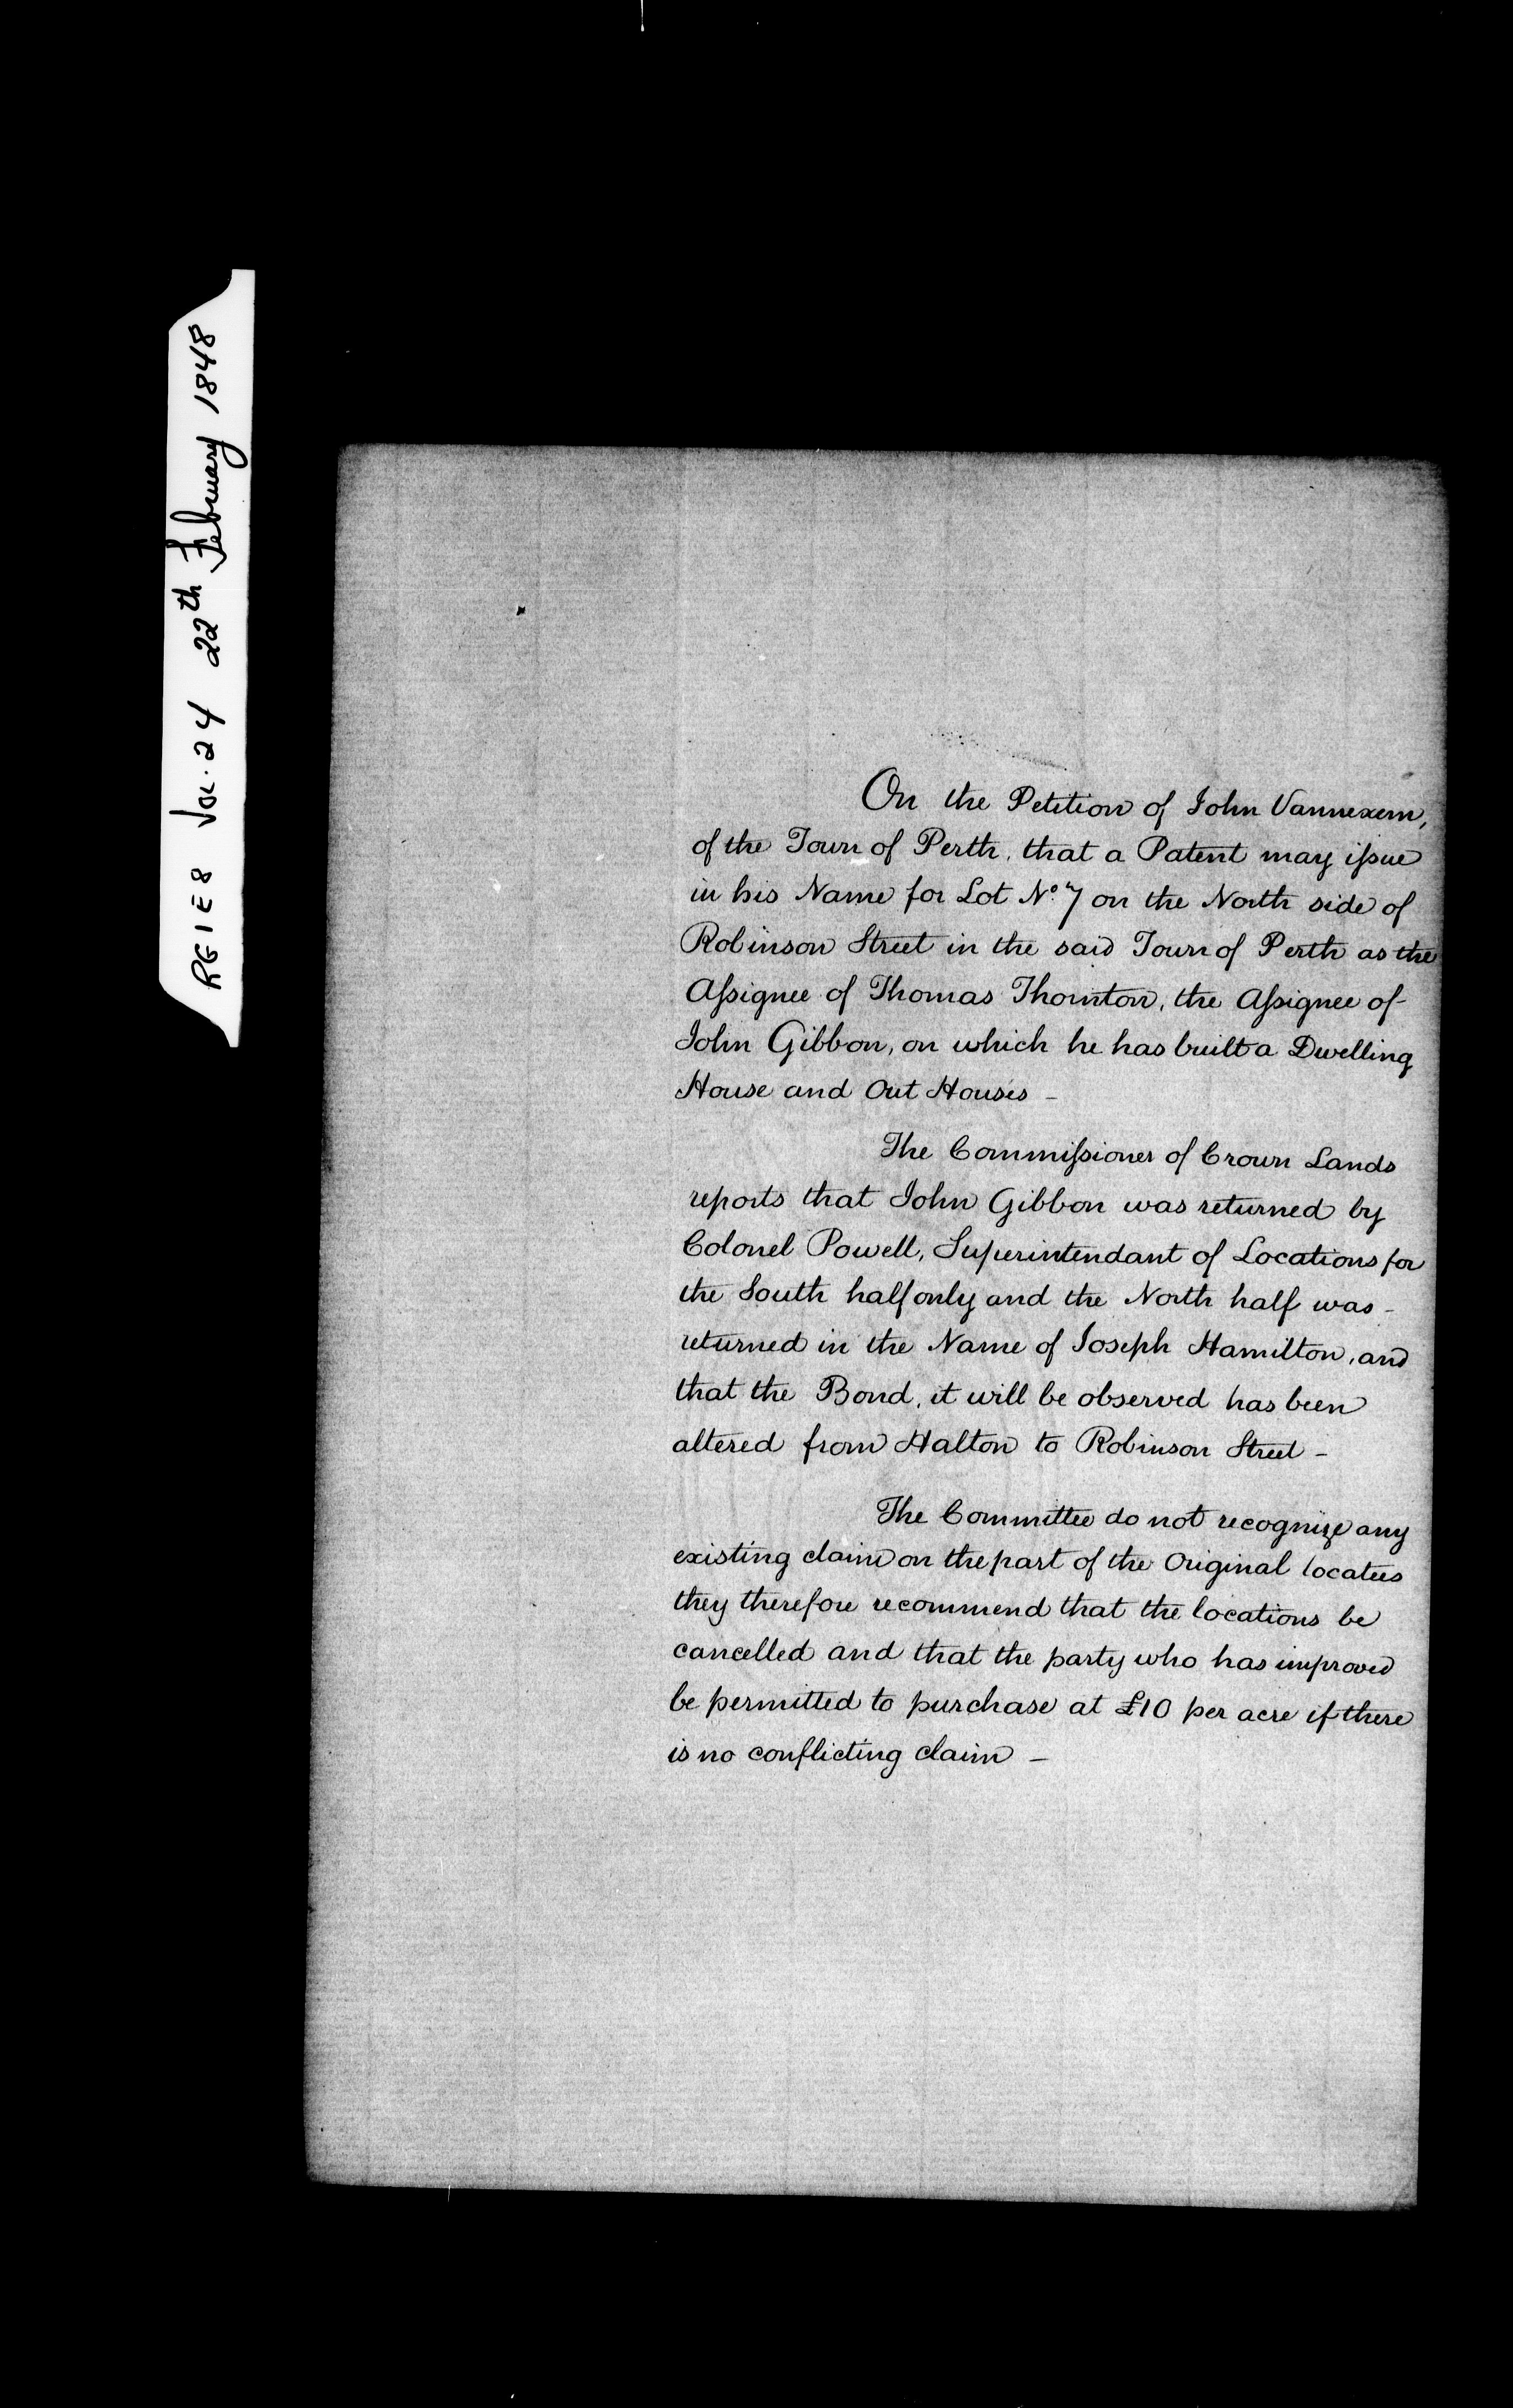 RG 1 E 8 Vol. 24 22th February 1848
On the Petition of John Vannexem,
of the Town of Perth, that a Patent may issue
in his Name for Lot No. 7 on the North side of
Robinson Street in the said Town of Perth as the
Assignee of Thomas Thornton, the Assignee of
John Gibbon, on which he has built a Dwelling
House and Out Houses -
The Commissioner of Crown Lands
reports that John Gibbon was returned by
Colonel Powell, Superintendant of Locations for
the South half only and the North half was -
returned in the Name of Joseph Hamilton, and
that the Bond, it will be observed has been
altered from Halton to Robinson Street -
The Committee do not recognize any
existing claim on the part of the Original locatees
they therefore recommend that the locations be
cancelled and that the party who has improved
be permitted to purchase at £10 per acre if there
is no conflicting claim -